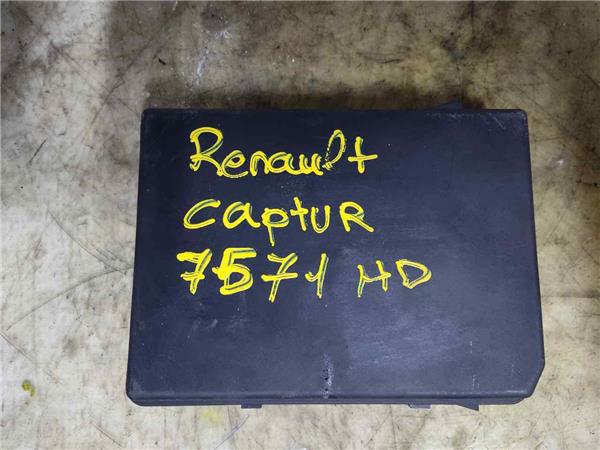 Renault
captur
7571 HD